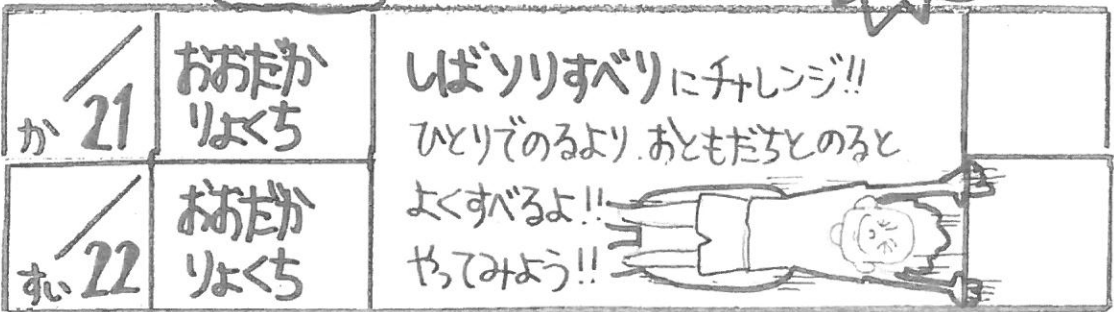 か／21
おおだか
りょくち
しばソリすべりにチャレンジ!!
ひとりでのるより、おともだちとのると
よくすべるよ!!
やってみよう!!
すい／22
おおだか
りょくち